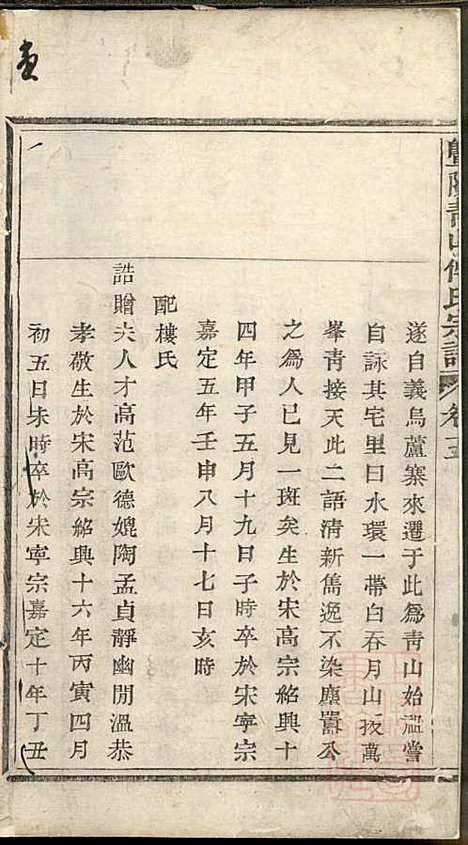 暨陽青山傅氏宗譜 卷十五
遂自義烏蘆寨來遷于此爲靑山始遷嘗
自詠其宅里曰水環一帶白吞月山拔萬
峯靑接天此二語淸新雋逸不染塵囂公
之爲人已見一斑矣生於宋高宗紹興十
四年甲子五月十九日子時卒於宋寧宗
嘉定五年壬申八月十七日亥時
配樓氏
誥贈夫人才高范歐德媲陶孟貞靜幽閒溫恭
孝敬生於宋高宗紹興十六年丙寅四月
初五日未時卒於宋寧宗嘉定十年丁丑